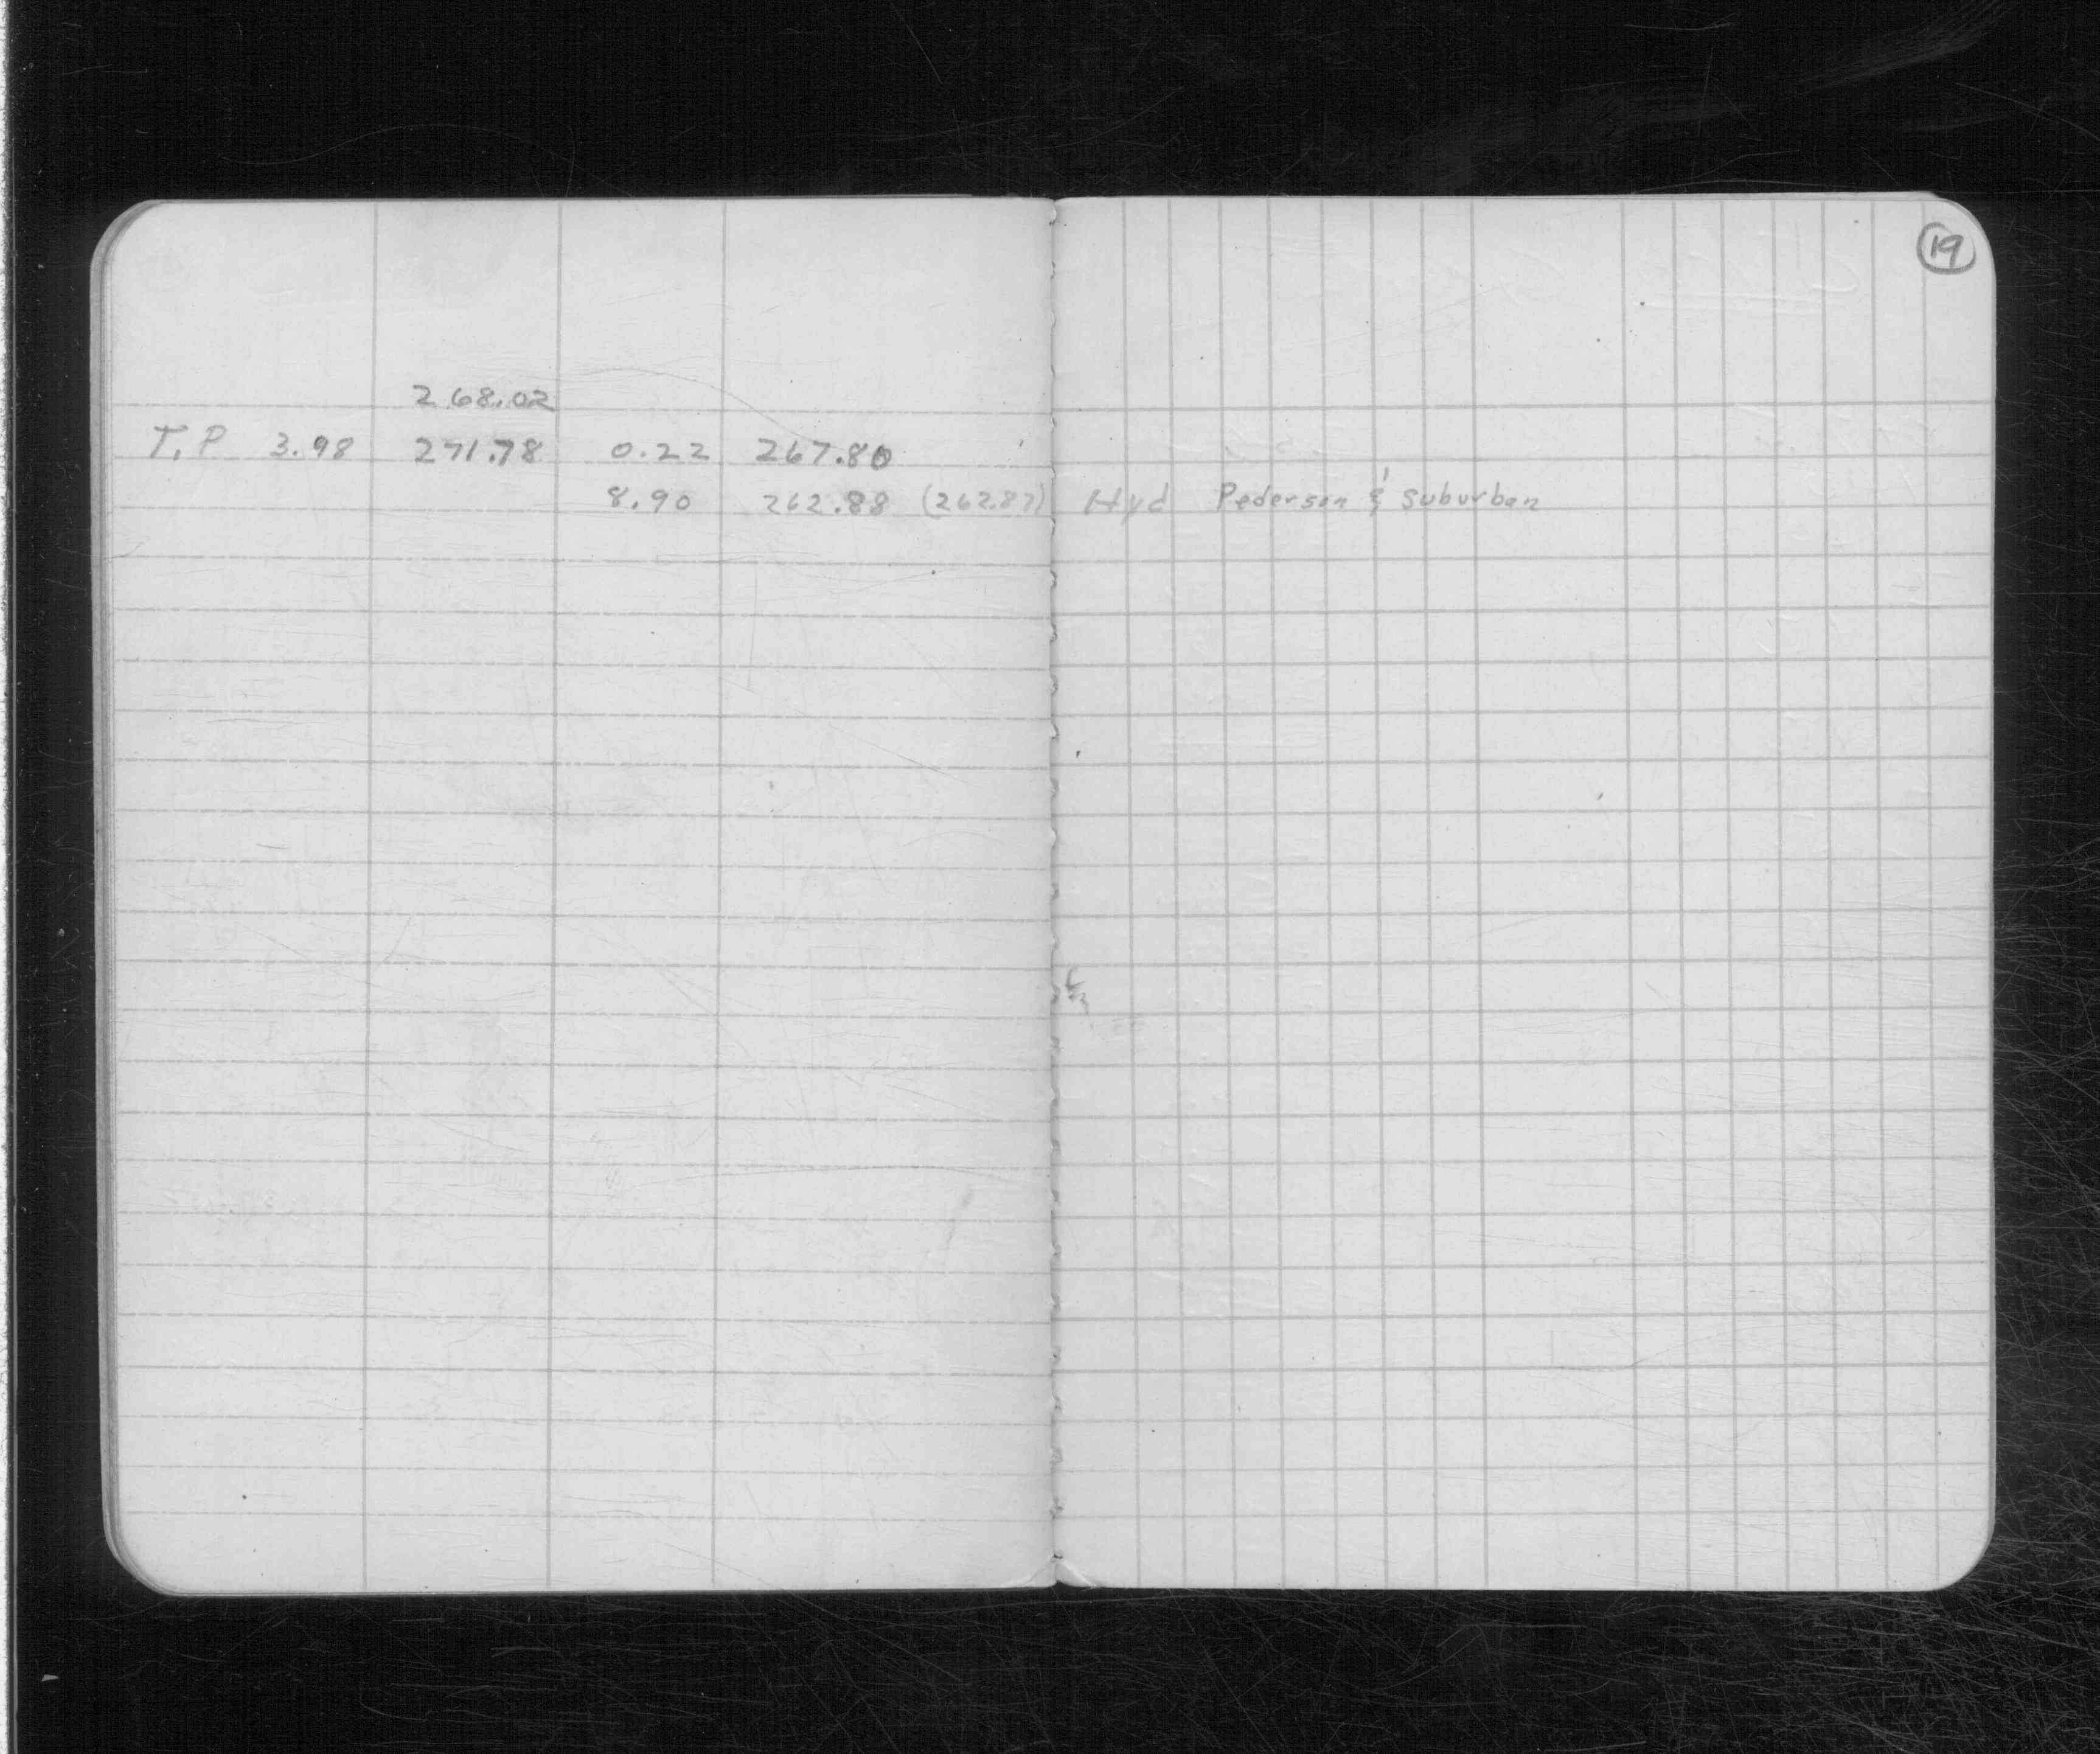 19
268.02
T.P 3.98 271.78 0.22 267.80
8.90 262.88 (262.87) Hyd Pederson & Suburban